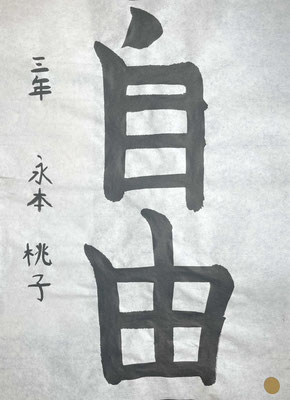 自由
三年 永本 桃子